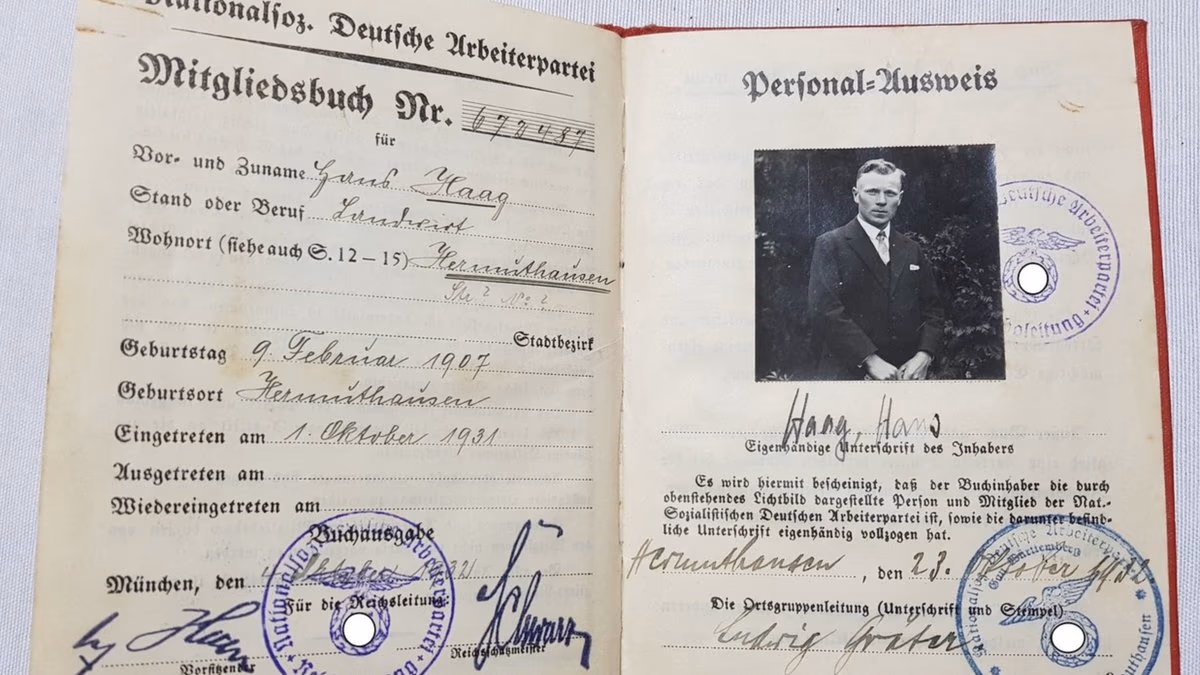 Nationalsoz. Deutsche Arbeiterpartei
Mitgliedsbuch Nr. 672487
für
Vor- und Zuname Hans Haag
Stand oder Beruf Landwirt
Wohnort (siehe auch S. 12–15) Hermuthausen
Str? No?
Stadtbezirk
Geburtstag 9. Februar 1907
Geburtsort Hermuthausen
Eingetreten am 1. Oktober 1931
Ausgetreten am
Wiedereingetreten am
Buchausgabe
München, den Oktober 1932
Für die Reichsleitung:
Vorsitzender
Reichsschatzmeister
Schwarz
Nationalsoz. Arbeiterpartei
Personal-Ausweis
Deutsche Arbeiterpartei
Haag, Hans
Eigenhändige Unterschrift des Inhabers
Es wird hiermit bescheinigt, daß der Buchinhaber die durch
obenstehendes Lichtbild dargestellte Person und Mitglied der Nat.-
Sozialistischen Deutschen Arbeiterpartei ist, sowie die darunter befind-
liche Unterschrift eigenhändig vollzogen hat.
Hermuthausen, den 23. Oktober 1932
Die Ortsgruppenleitung (Unterschrift und Stempel)
Ludwig Gräter
Deutsche Arbeiterpartei
Gau Württemberg